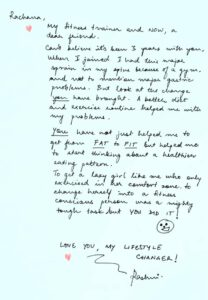 Rachana,
My fitness trainer and NOW, a
dear friend.
Can't believe it's been 3 years with you,
When I joined I had this major
sprain in my spine because of a gym,
and not to mention major gastric
problems. But look at the change
you have brought. A better diet
and exercise routine helped me with
my problems.
You have not just helped me to
get from FAT to FIT but helped me
to start thinking about a healthier
eating pattern.
To get a lazy girl like me who only
exercised in her comfort zone to
change herself into a fitness
conscious person was a mighty
tough task but YOU DID IT!
LOVE YOU, MY LIFESTYLE
CHANGER!
Rashmi